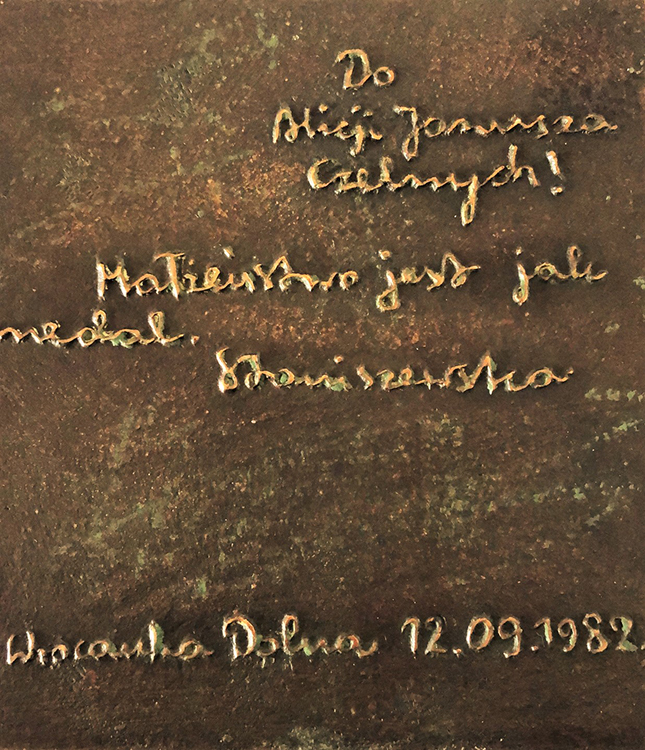 Do
Alicji Janusza
Czelnych!
Małżeństwo jest jak
medal.
Staniszewska
Wiocanka Dolna 12.09.1982